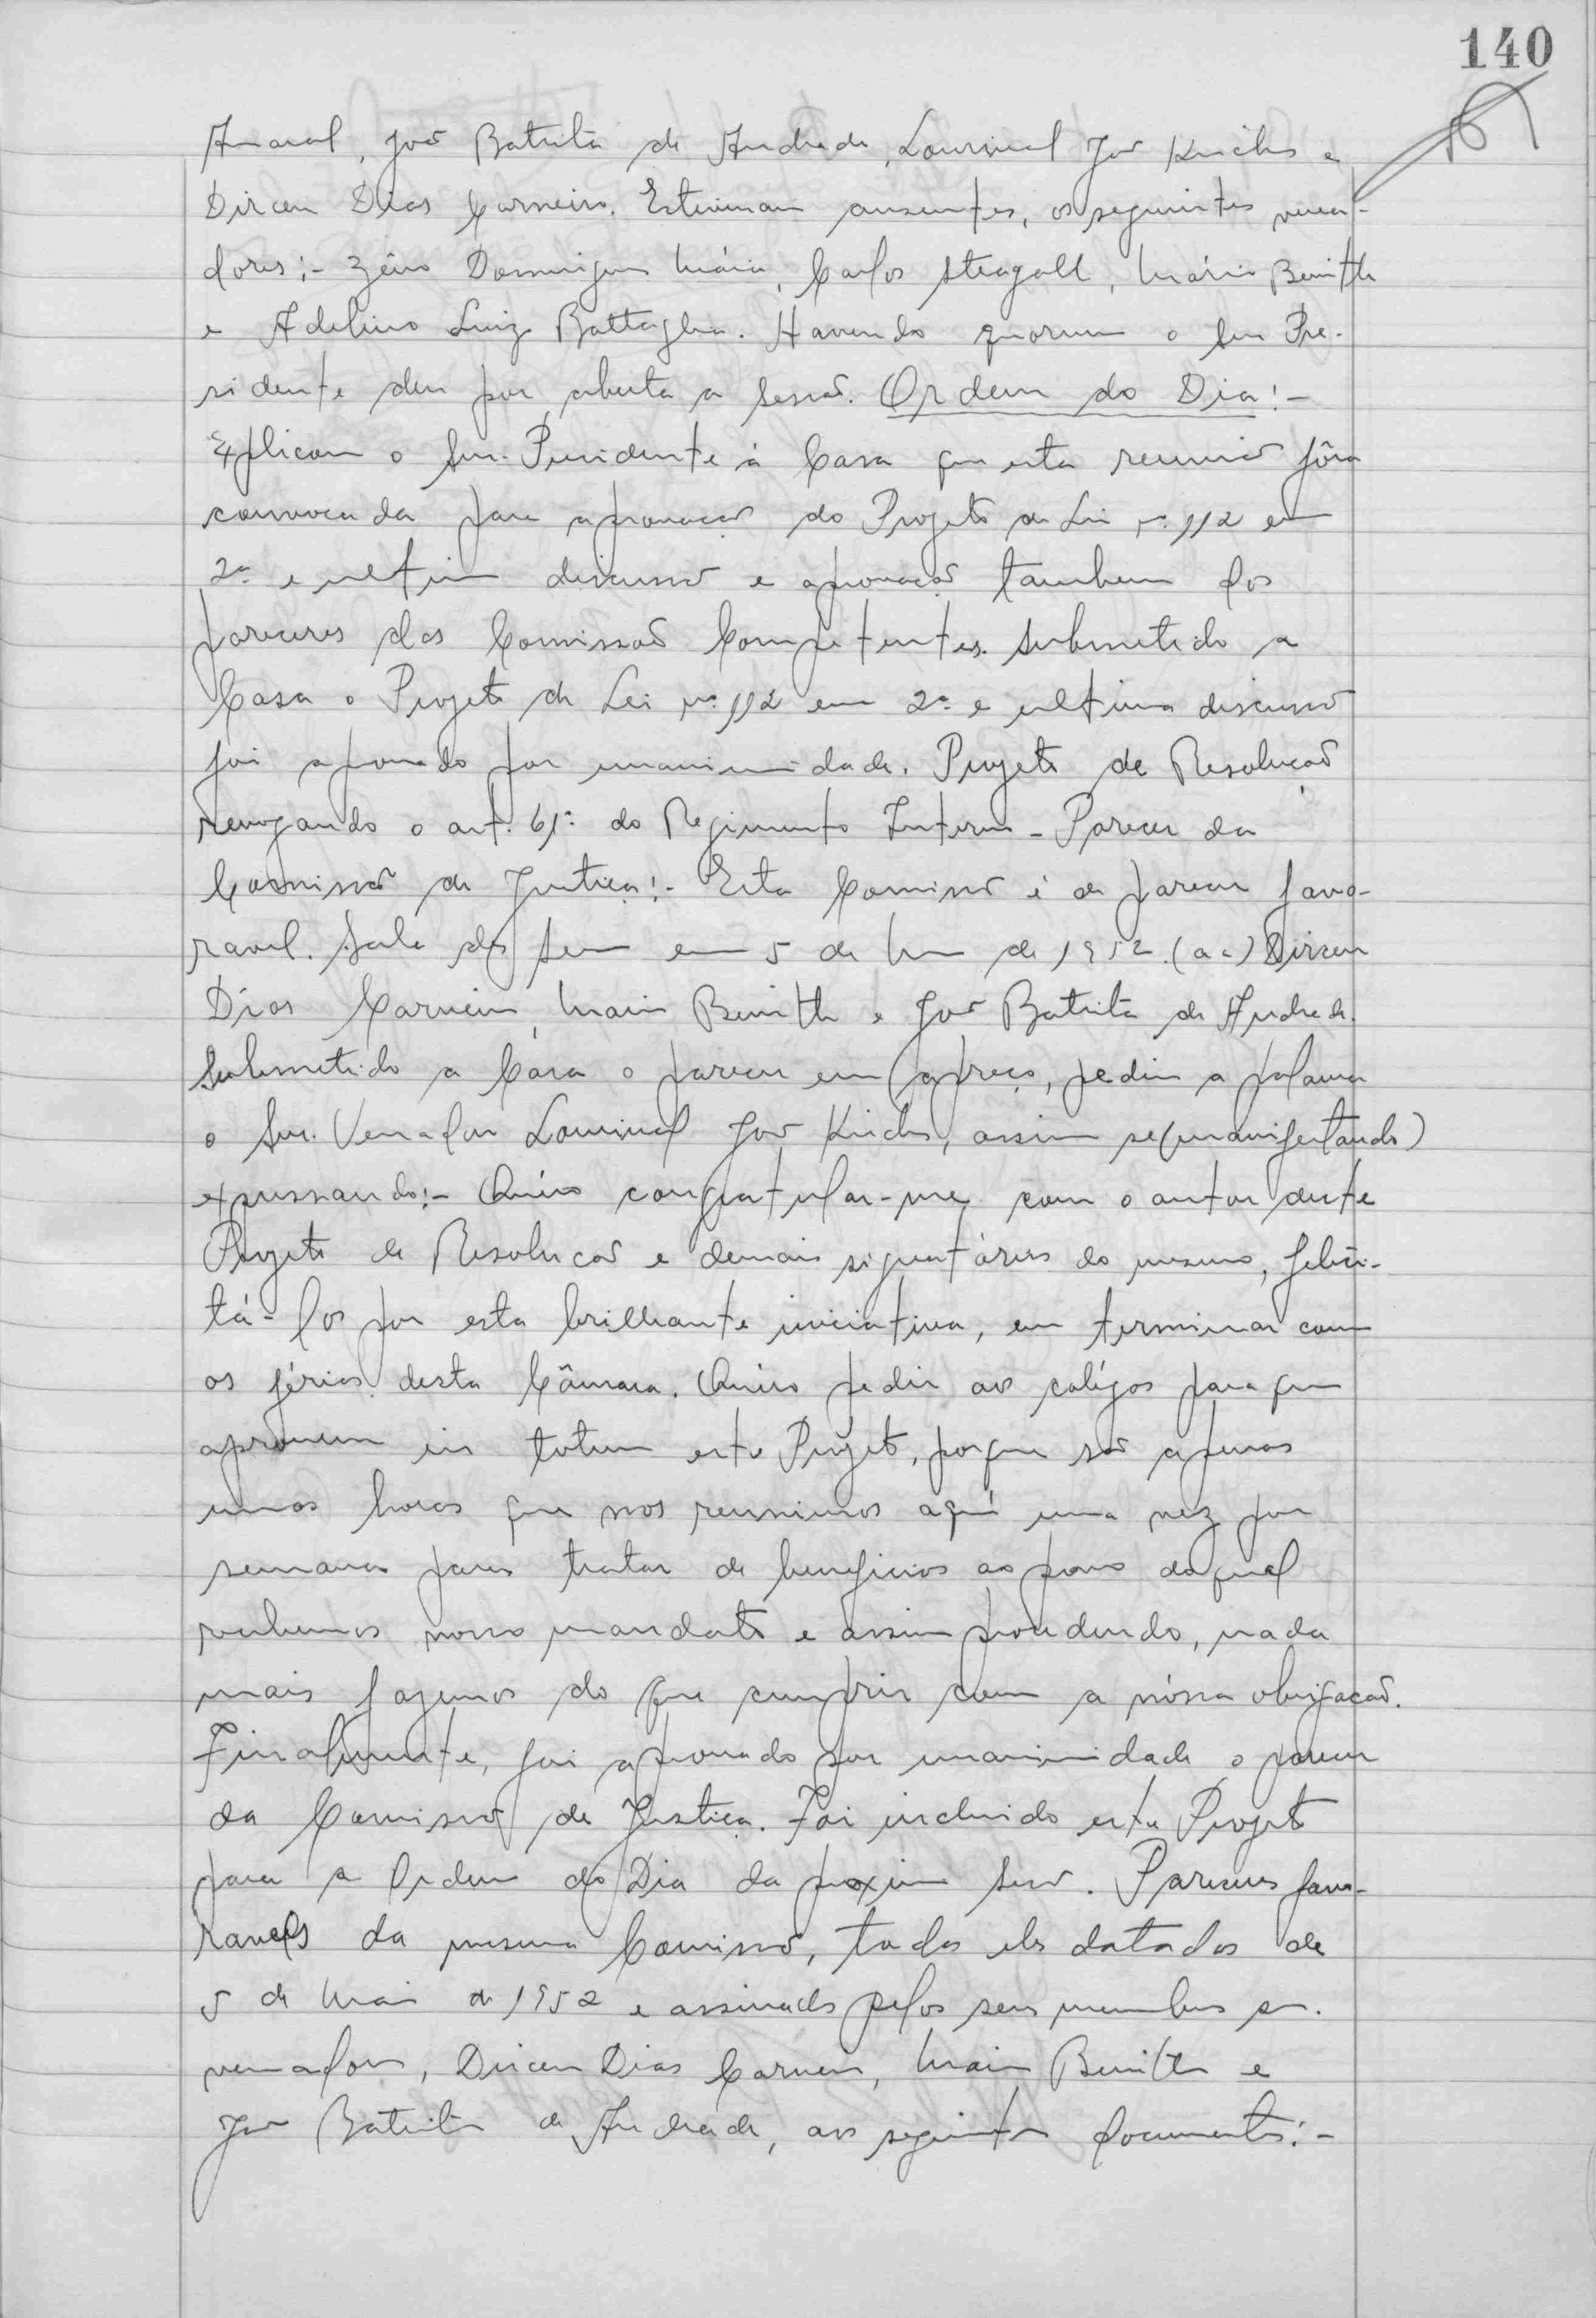 140
Amaral, João Batista de Andrade, Lourival José Kirche e
Dirceu Dias Carneiro. Estiveram ausentes, os seguintes verea-
dores:- Zêno Domingues Mária, Carlos Stragall, Mário Benitth
e Adelino Luiz Battaglia. Havendo quorum o Snr. Pre-
sidente deu por aberta a sessão. Ordem do Dia:-
Explicou o Snr. Presidente á Casa que esta reunião fôra
convocada para aprovação do Projeto de Lei nº. 112 em
2ª. e ultima discussão e aprovação tambem dos
pareceres das Comissão Competentes. Submetido a
Casa o Projeto de Lei nº. 112 em 2ª. e ultima discussão
foi aprovado por unanimidade. Projeto de Resolução
revogando o art. 61º. do Regimento Interno - Parecer da
Comissão de Justiça:- Esta Comissão é de parecer favo-
ravel. Sala das Sessões em 5 de Maio de 1952. (aa) Dirceu
Dias Carneiro, Mario Benitth e João Batista de Andrade.
Submetido a Casa o parecer em apreço, pediu a palavra
o Snr. Vereador Lourival José Kirche, assim se (manifestando)
expressando:- Quéro congratular-me com o autor deste
Projeto de Resolução e demais signatários do mesmo, felici-
tá-los por esta brilhante iniciativa, em terminar com
as férias desta Câmara. Quéro pedir aos colégas para que
aprovem in totum este Projeto, porque são apenas
umas horas que nos reunimos aquí uma vez por
semana para tratar de beneficios ao povo do qual
recebemos nosso mandato e assim procedendo, nada
mais fazemos do que cumprir com a nóssa obrigação.
Finalmente, foi aprovado por unanimidade o parecer
da Comissão de Justiça. Foi incluido este Projeto
para a Ordem do Dia da proxima Sessão. Pareceres favo-
raveis da mesma Comissão, todos eles datados de
5 de Maio de 1952 e assinados pelos seus membros srs.
vereadores, Dirceu Dias Carneiro, Mario Benitth e
João Batista de Andrade, aos seguintes documentos:-